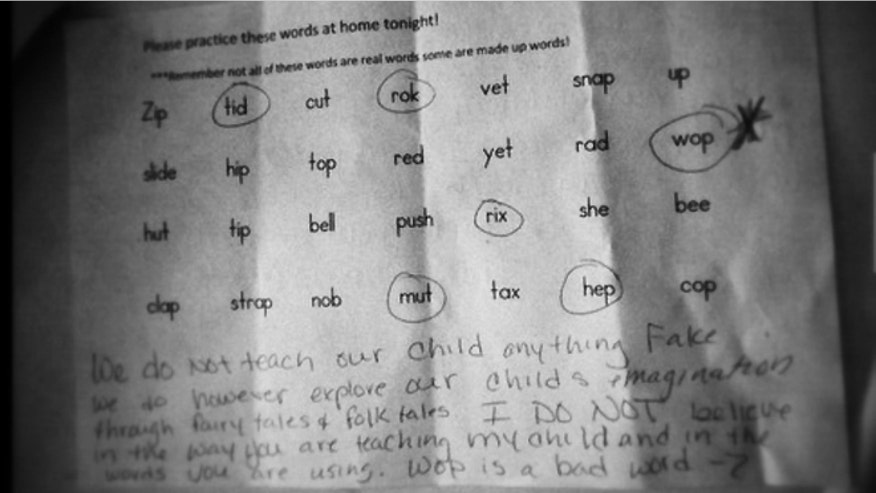 Please practice these words at home tonight!
***Remember not all of these words are real words some are made up words!
Zip tid cut rok vet snap up
slide hip top red yet rad wop
hut tip bell push rix she bee
clap strap nob mut tax hep cop
We do NOT teach our child anything Fake
we do however explore our child's imagination
through fairy tales & folk tales I DO NOT believe
in the way you are teaching my child and in the
words you are using. Wop is a bad word -